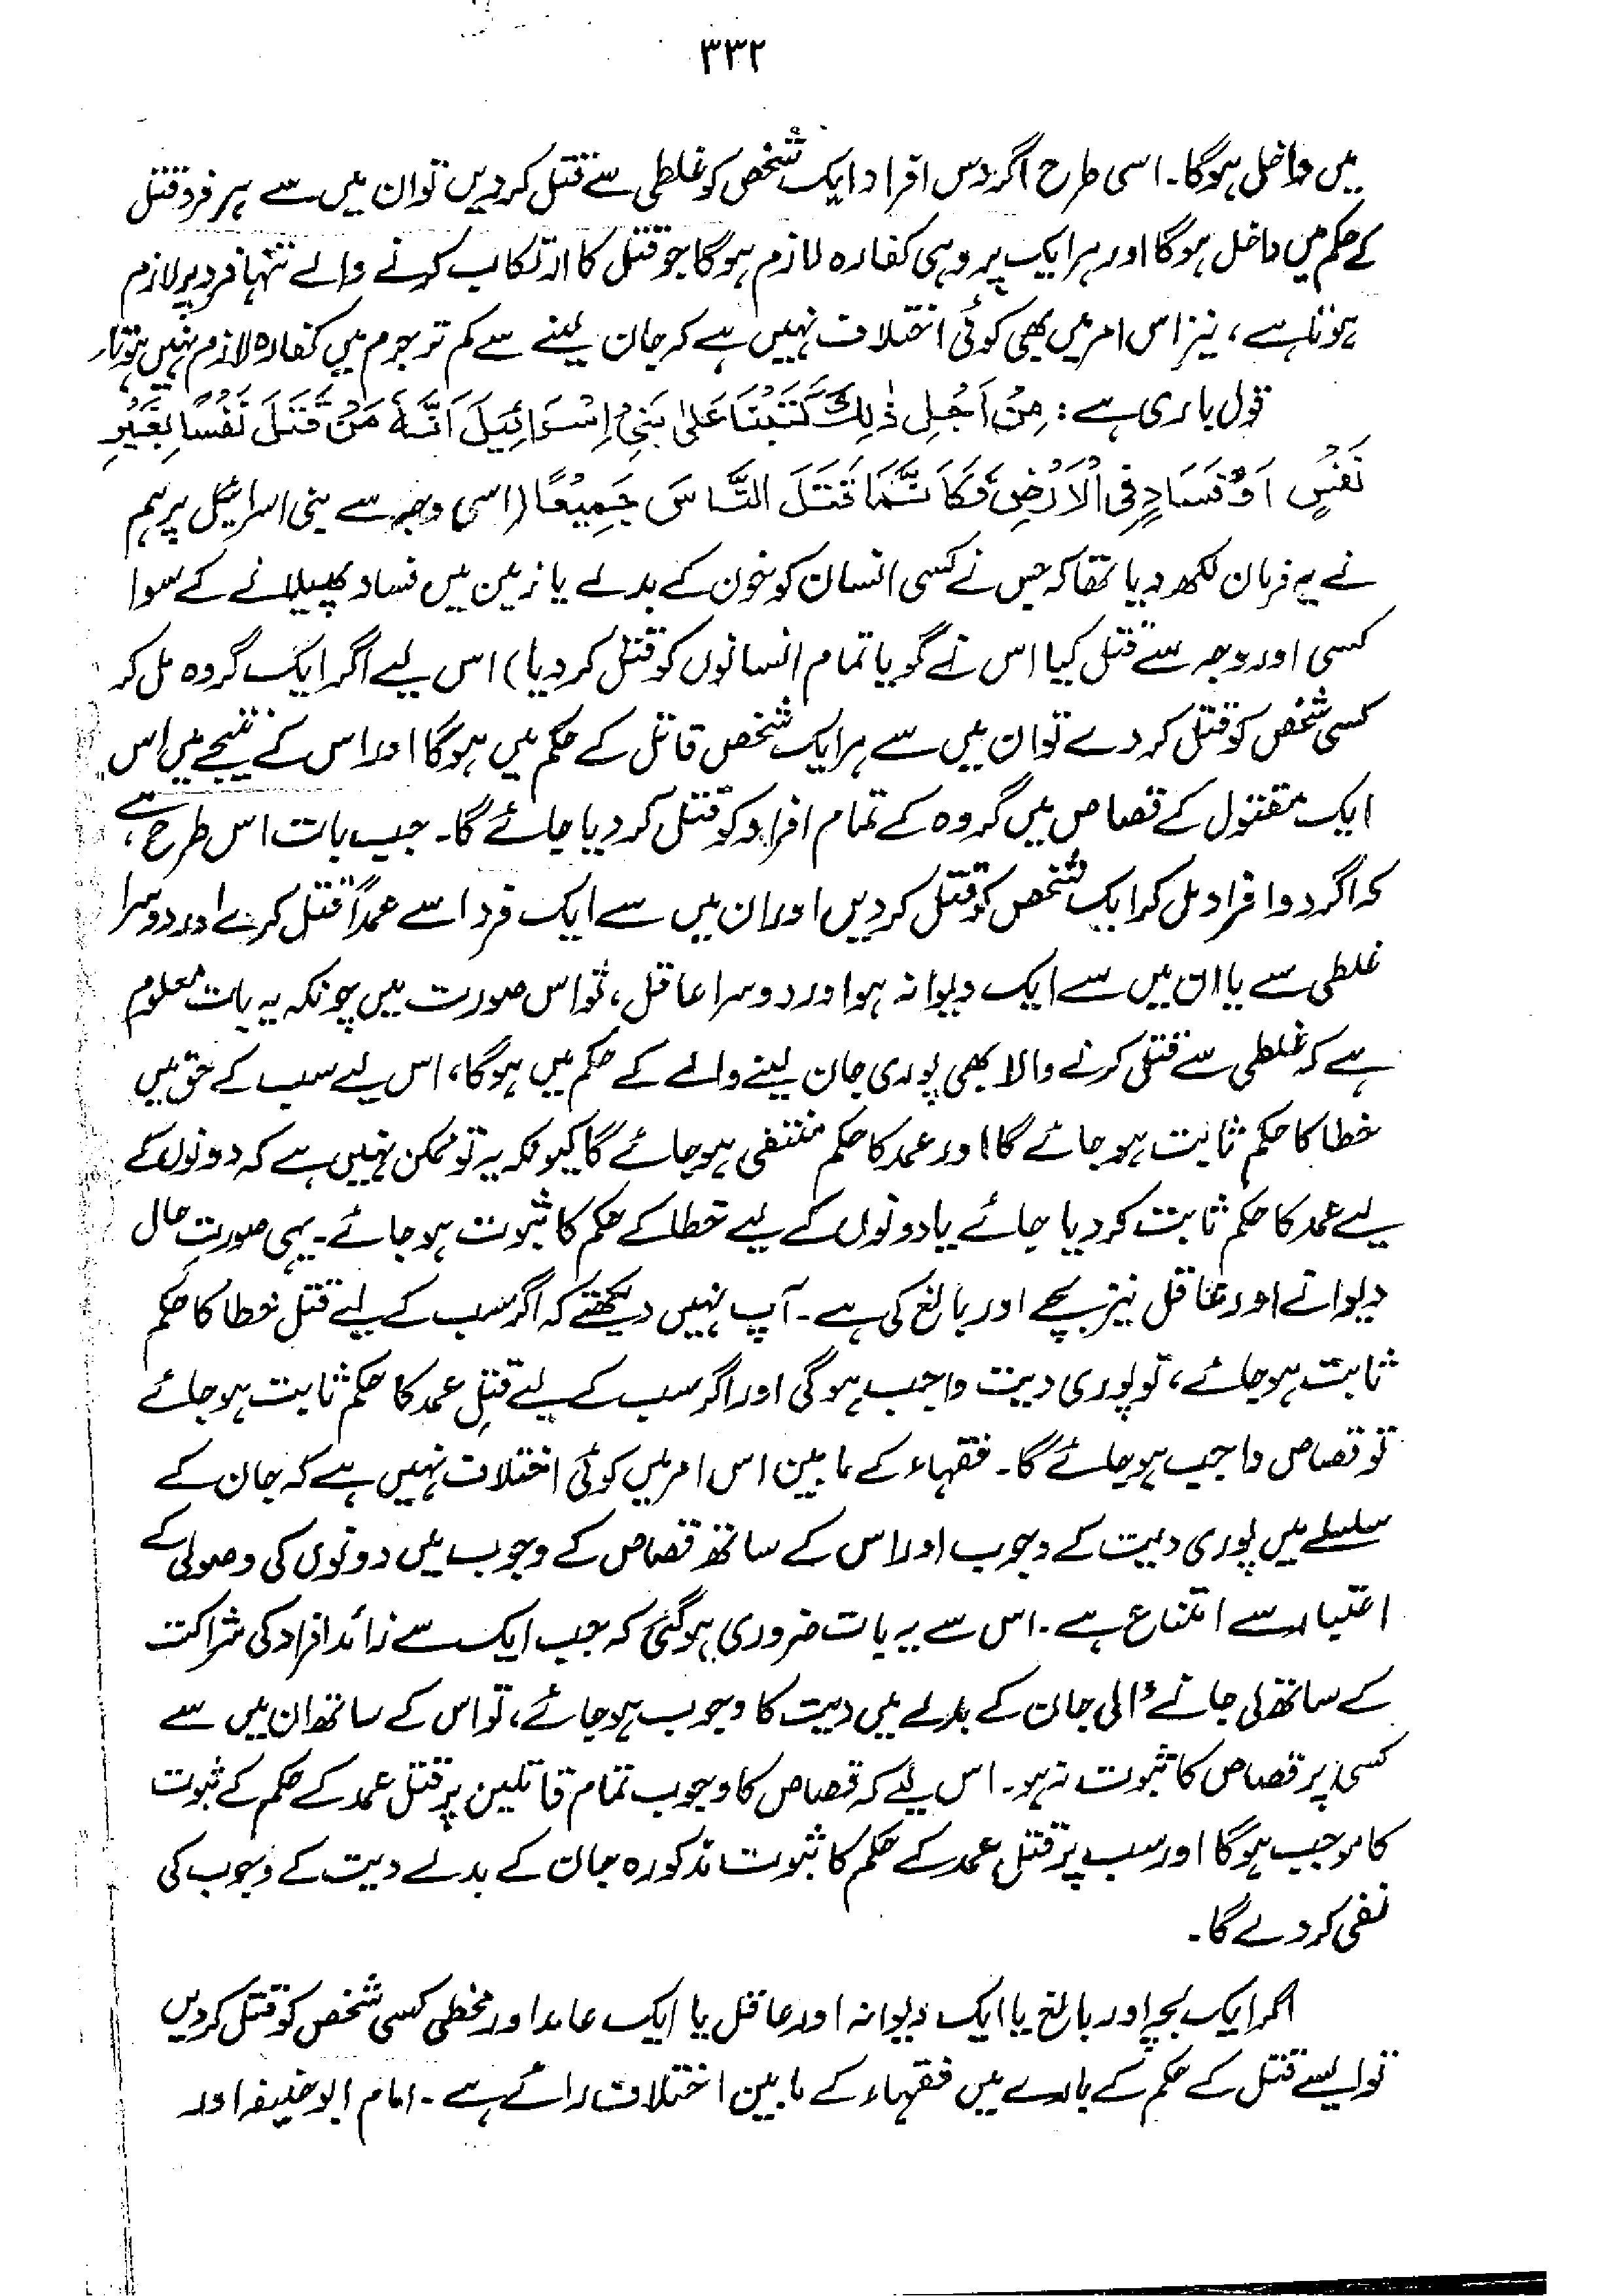 ۳۳۲
میں داخل ہوگا۔ اسی طرح اگر دس افراد ایک شخص کو غلطی سے قتل کردیں تو ان میں سے ہر فرد قتل
کے حکم میں داخل ہوگا اور ہر ایک پر وہی کفارہ لازم ہوگا جو قتل کا ارتکاب کرنے والے تنہا فرد پر لازم
ہوتا ہے، نیز اس امر میں بھی کوئی اختلاف نہیں ہے کہ جان لینے سے کم تر جرم میں کفارہ لازم نہیں ہوتا۔
قول باری ہے: مِنْ اَجْلِ ذٰلِكَ كَتَبْنَا عَلٰی بَنِیْ اِسْرَائِیْلَ اَنَّهٗ مَنْ قَتَلَ نَفْسًا بِغَیْرِ
نَفْسٍ اَوْ فَسَادٍ فِی الْاَرْضِ فَكَاَنَّمَا قَتَلَ النَّاسَ جَمِیْعًا (اسی وجہ سے بنی اسرائیل پر ہم
نے یہ فرمان لکھ دیا تھا کہ جس نے کسی انسان کو خون کے بدلے یا زمین میں فساد پھیلانے کے سوا
کسی اور وجہ سے قتل کیا اس نے گویا تمام انسانوں کو قتل کر دیا) اس لیے اگر ایک گروہ مل کر
کسی شخص کو قتل کر دے تو ان میں سے ہر ایک شخص قاتل کے حکم میں ہوگا اور اس کے نتیجے میں اس
ایک مقتول کے قصاص میں گروہ کے تمام افراد کو قتل کر دیا جائے گا۔ جب بات اس طرح ہے،
کہ اگر دو افراد مل کر ایک شخص کو قتل کردیں اور ان میں سے ایک فرد اسے عمداً قتل کرے اور دوسرا
غلطی سے یا ان میں سے ایک دیوانہ ہو اور دوسرا عاقل، تو اس صورت میں چونکہ یہ بات معلوم
ہے کہ غلطی سے قتل کرنے والا بھی پوری جان لینے والے کے حکم میں ہوگا، اس لیے سب کے حق میں
خطا کا حکم ثابت ہو جائے گا اور عمد کا حکم منتفی ہو جائے گا کیونکہ یہ تو ممکن نہیں ہے کہ دونوں کے
لیے عمد کا حکم ثابت کر دیا جائے یا دونوں کے لیے خطا کے حکم کا ثبوت ہو جائے۔ یہی صورتِ حال
دیوانے اور عاقل نیز بچے اور بالغ کی ہے۔ آپ نہیں دیکھتے کہ اگر سب کے لیے قتل خطا کا حکم
ثابت ہو جائے، تو پوری دیت واجب ہوگی اور اگر سب کے لیے قتلِ عمد کا حکم ثابت ہو جائے
تو قصاص واجب ہو جائے گا۔ فقہاء کے مابین اس امر میں کوئی اختلاف نہیں ہے کہ جان کے
سلسلے میں پوری دیت کے وجوب اور اس کے ساتھ قصاص کے وجوب میں دونوں کی وصولی کے
اعتبار سے امتناع ہے۔ اس سے یہ بات ضروری ہوگئی کہ جب ایک سے زائد افراد کی شراکت
کے ساتھ لی جانے والی جان کے بدلے میں دیت کا وجوب ہو جائے، تو اس کے ساتھ ان میں سے
کسی پر قصاص کا ثبوت نہ ہو۔ اس لیے کہ قصاص کا وجوب تمام قاتلین پر قتل عمد کے حکم کے ثبوت
کا موجب ہوگا اور سب پر قتل عمد کے حکم کا ثبوت مذکورہ جان کے بدلے دیت کے وجوب کی
نفی کر دے گا۔
اگر ایک بچہ اور بالغ یا ایک دیوانہ اور عاقل یا ایک عامد اور مخطی کسی شخص کو قتل کر دیں
تو ایسے قتل کے حکم کے بارے میں فقہاء کے مابین اختلاف رائے ہے۔ امام ابو حنیفہ اور